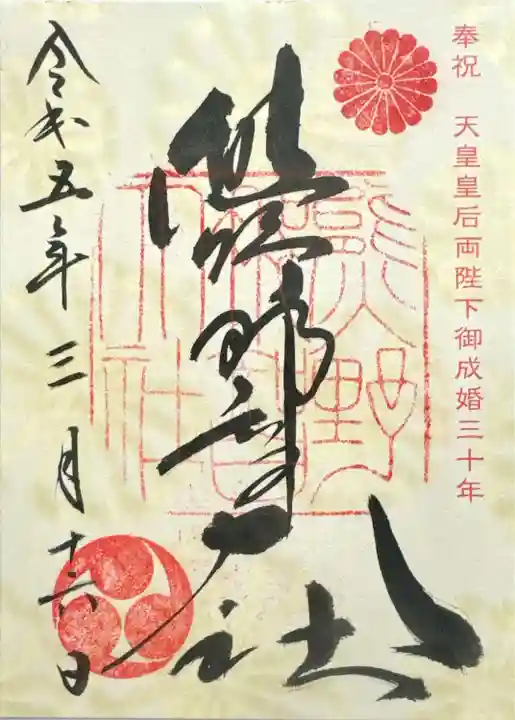 奉祝 天皇皇后両陛下御成婚三十年
熊野那智大社
令和五年三月十六日